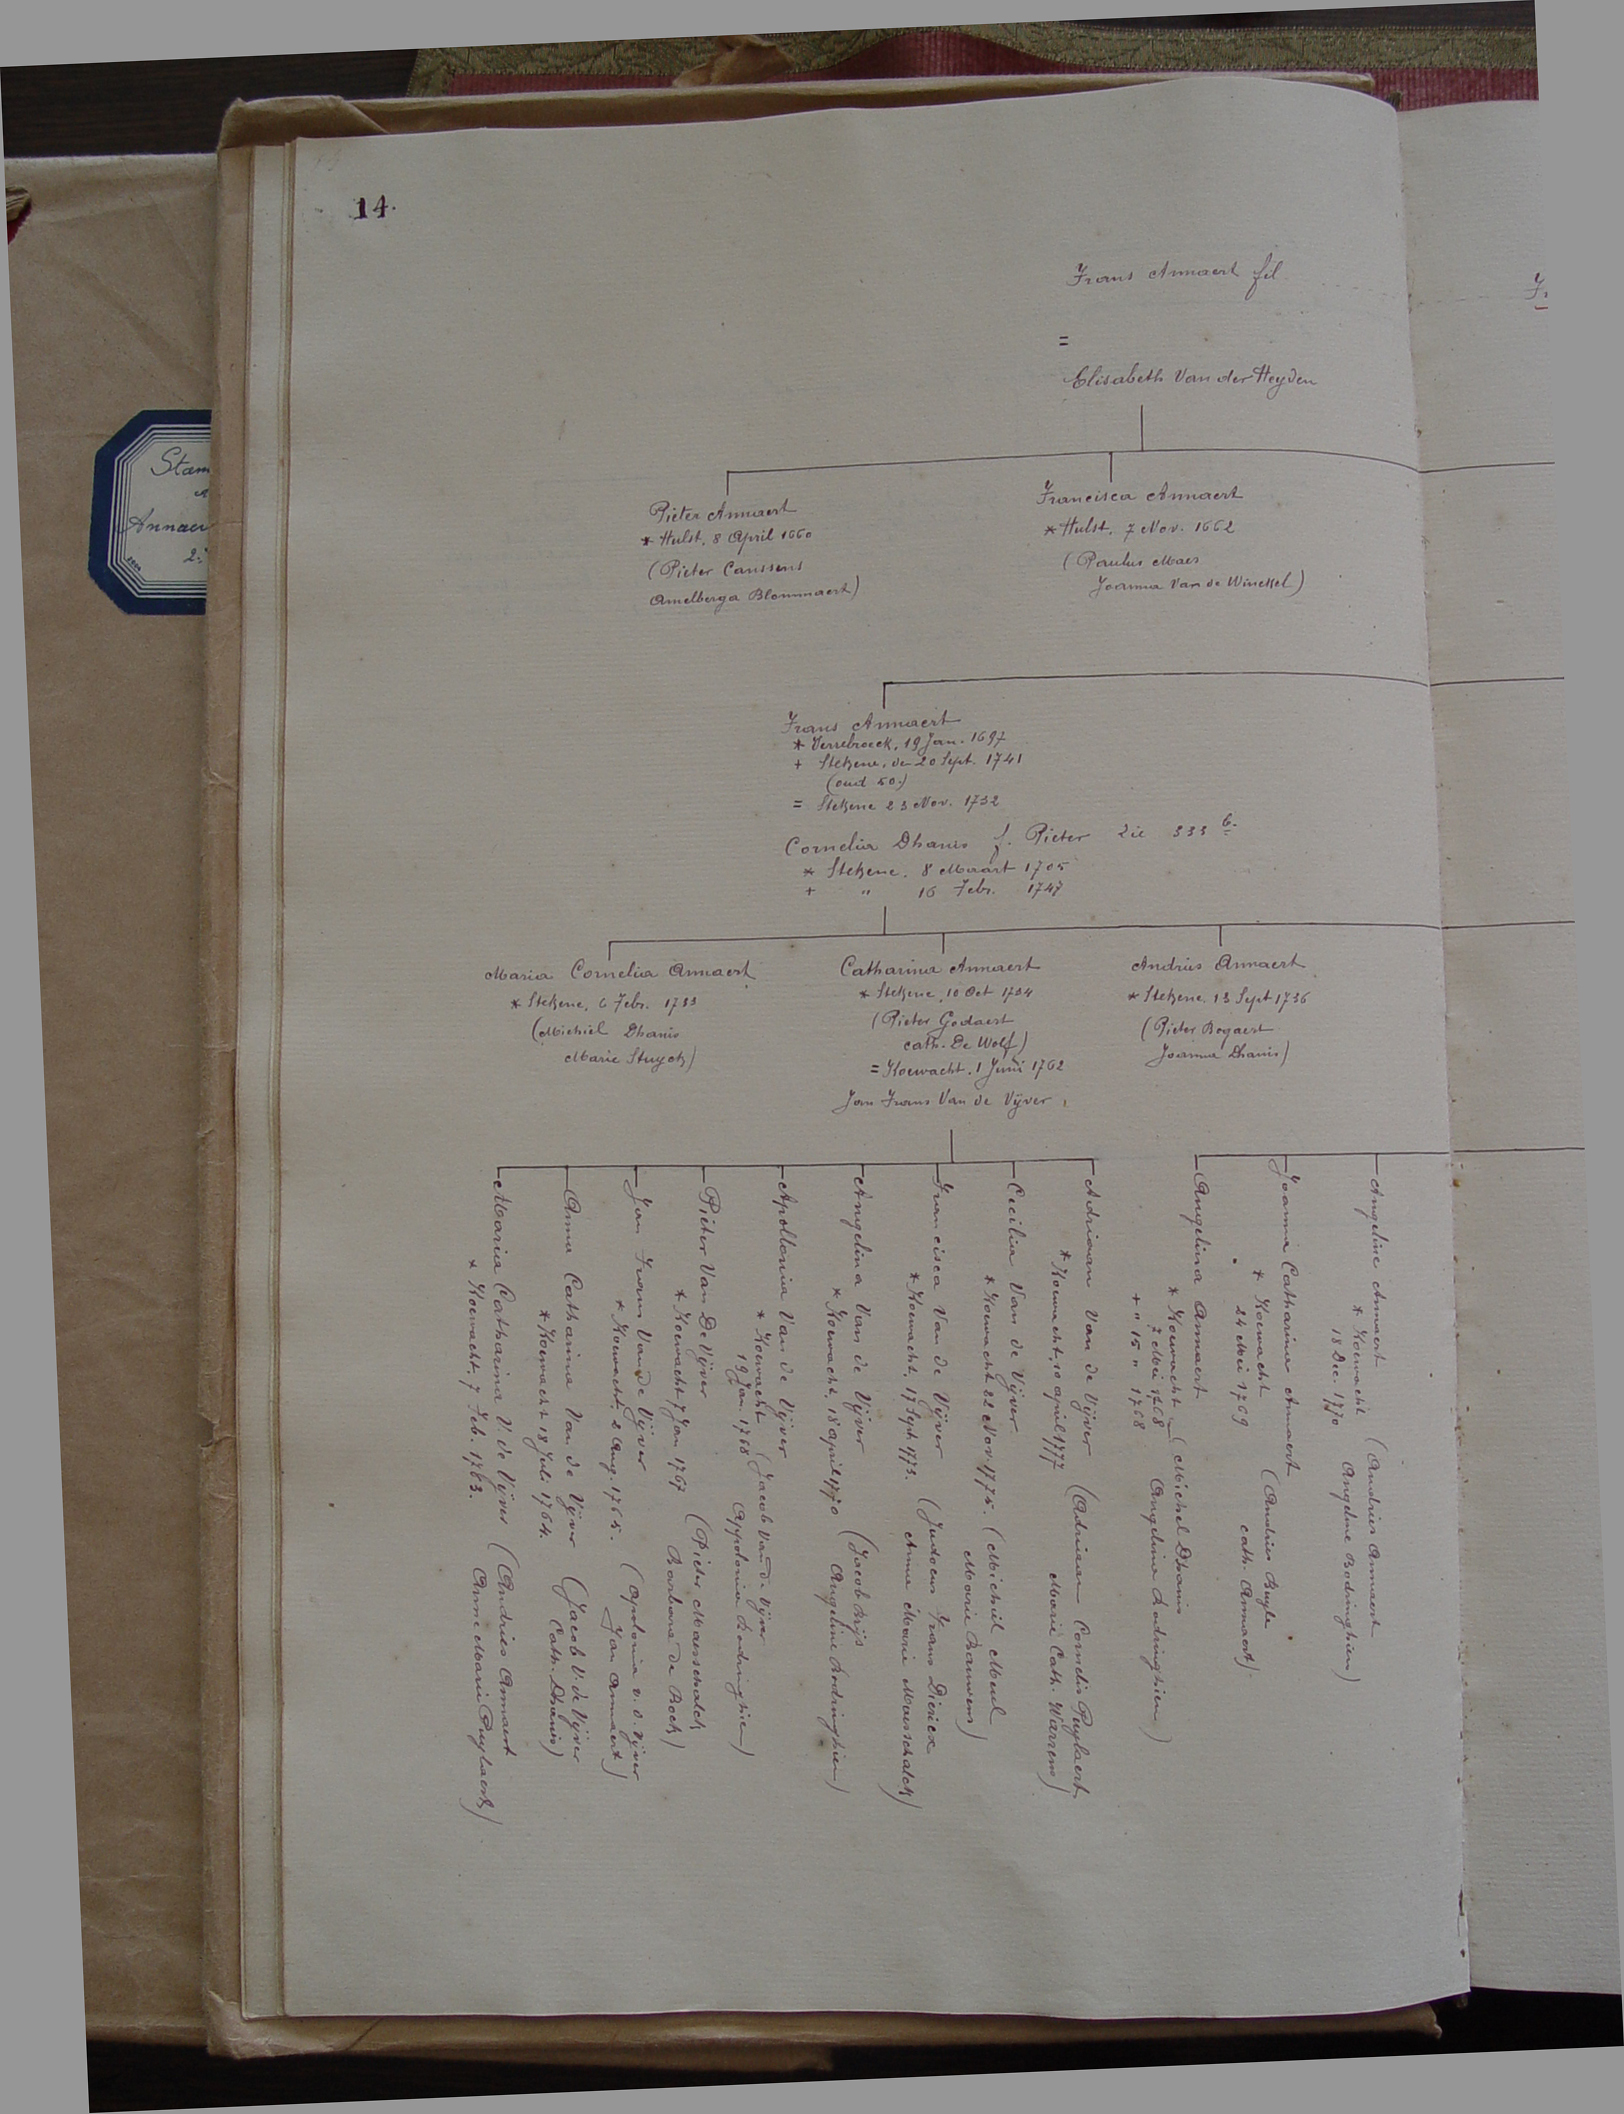 14.
Frans Annaert fil
=
Elisabeth Van der Heyden
Pieter Annaert
* Hulst, 8 April 1660
(Pieter Canssens
Amelberga Blommaert)
Francisca Annaert
* Hulst, 7 Nov. 1662
(Paulus Maes
Joanna Van de Winckel)
Frans Annaert
* Verrebroeck, 19 Jan. 1697
+ Stekene, den 20 Sept. 1741
(oud 50.)
= Stekene 23 Nov. 1732
Cornelia Dhanis f. Pieter Zie 333 b.
* Stekene. 8 Maart 1705
+ " 16 Febr. 1747
Maria Cornelia Annaert
* Stekene, 6 Febr. 1733
(Michiel Dhanis
Marie Stuyck)
Catharina Annaert
* Stekene, 10 Oct 1734
(Pieter Godaert
cath. De Wolf)
= Koewacht. 1 Juni 1762
Jan Frans Van de Vijver
Andries Annaert
* Stekene. 13 Sept 1736
(Pieter Bogaert
Joanna Dhanis)
Maria Catharina V. de Vijver (Andries Annaert
* Koewacht. 7 Feb. 1763. Anne Marie Puylaert)
Anna Catharina Van de Vijver (Jacob V. de Vijver
* Koewacht 18 Juli 1764. Cath. Dhanis)
Jan Frans Van de Vijver (Apolonia v. d. Vijver
* Koewacht, 2 Aug. 1765. Jan Annaert)
Pieter Van De Vijver (Pieter Marschalck
* Koewacht 7 Jan 1767 Barbara de Bock)
Apollonia Van de Vijver
* Koewacht (Jacob Van de Vijver
19 Jan. 1768 Appolonia Lodringhien)
Angelina Van de Vijver (Jacob Krijs
* Koewacht, 18 april 1770 Angeline Lodringhien)
Francisca Van de Vijver (Judocus Frans Dierick
* Koewacht, 17 Sept 1773. Anna Marie Marschalck)
Cecilia Van de Vijver (Michiel Meul
* Koewacht 22 Nov. 1775. Marie Bauwens)
Adriaan Van de Vijver (Adriaan Cornelis Puylaert
* Koewacht, 10 april 1777 Marie Cath. Warrens)
Angelina Annaert
* Koewacht (Michel Dhanis
7 Mei 1768 Angelina Lodringhien)
+ " 15 " 1768
Joanna Catharina Annaert
* Koewacht (Andries Buyle
24 Mei 1769 cath. Annaert)
Angeline Annaert (Andries Annaert
* Koewacht Angeline Bodringhien)
18 Dec. 1770
Stam
Annaer